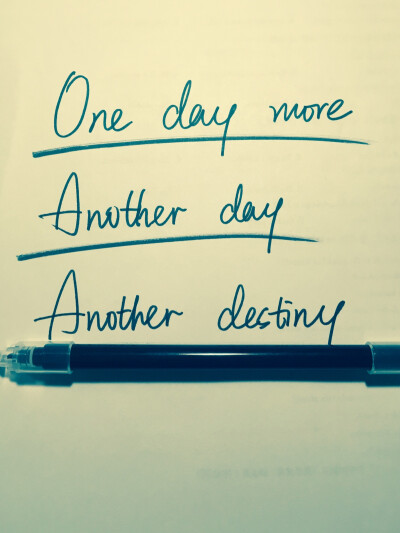 One day more
Another day
Another destiny